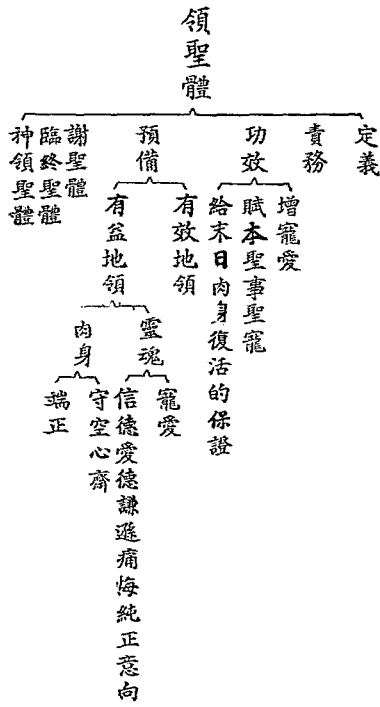 領聖體
定義
責務
功效
增寵愛
賦本聖事聖寵
給末日肉身復活的保證
預備
有效地領
有益地領
靈魂
寵愛
信德愛德謙遜痛悔純正意向
肉身
守空心齋
端正
謝聖體
臨終聖體
神領聖體